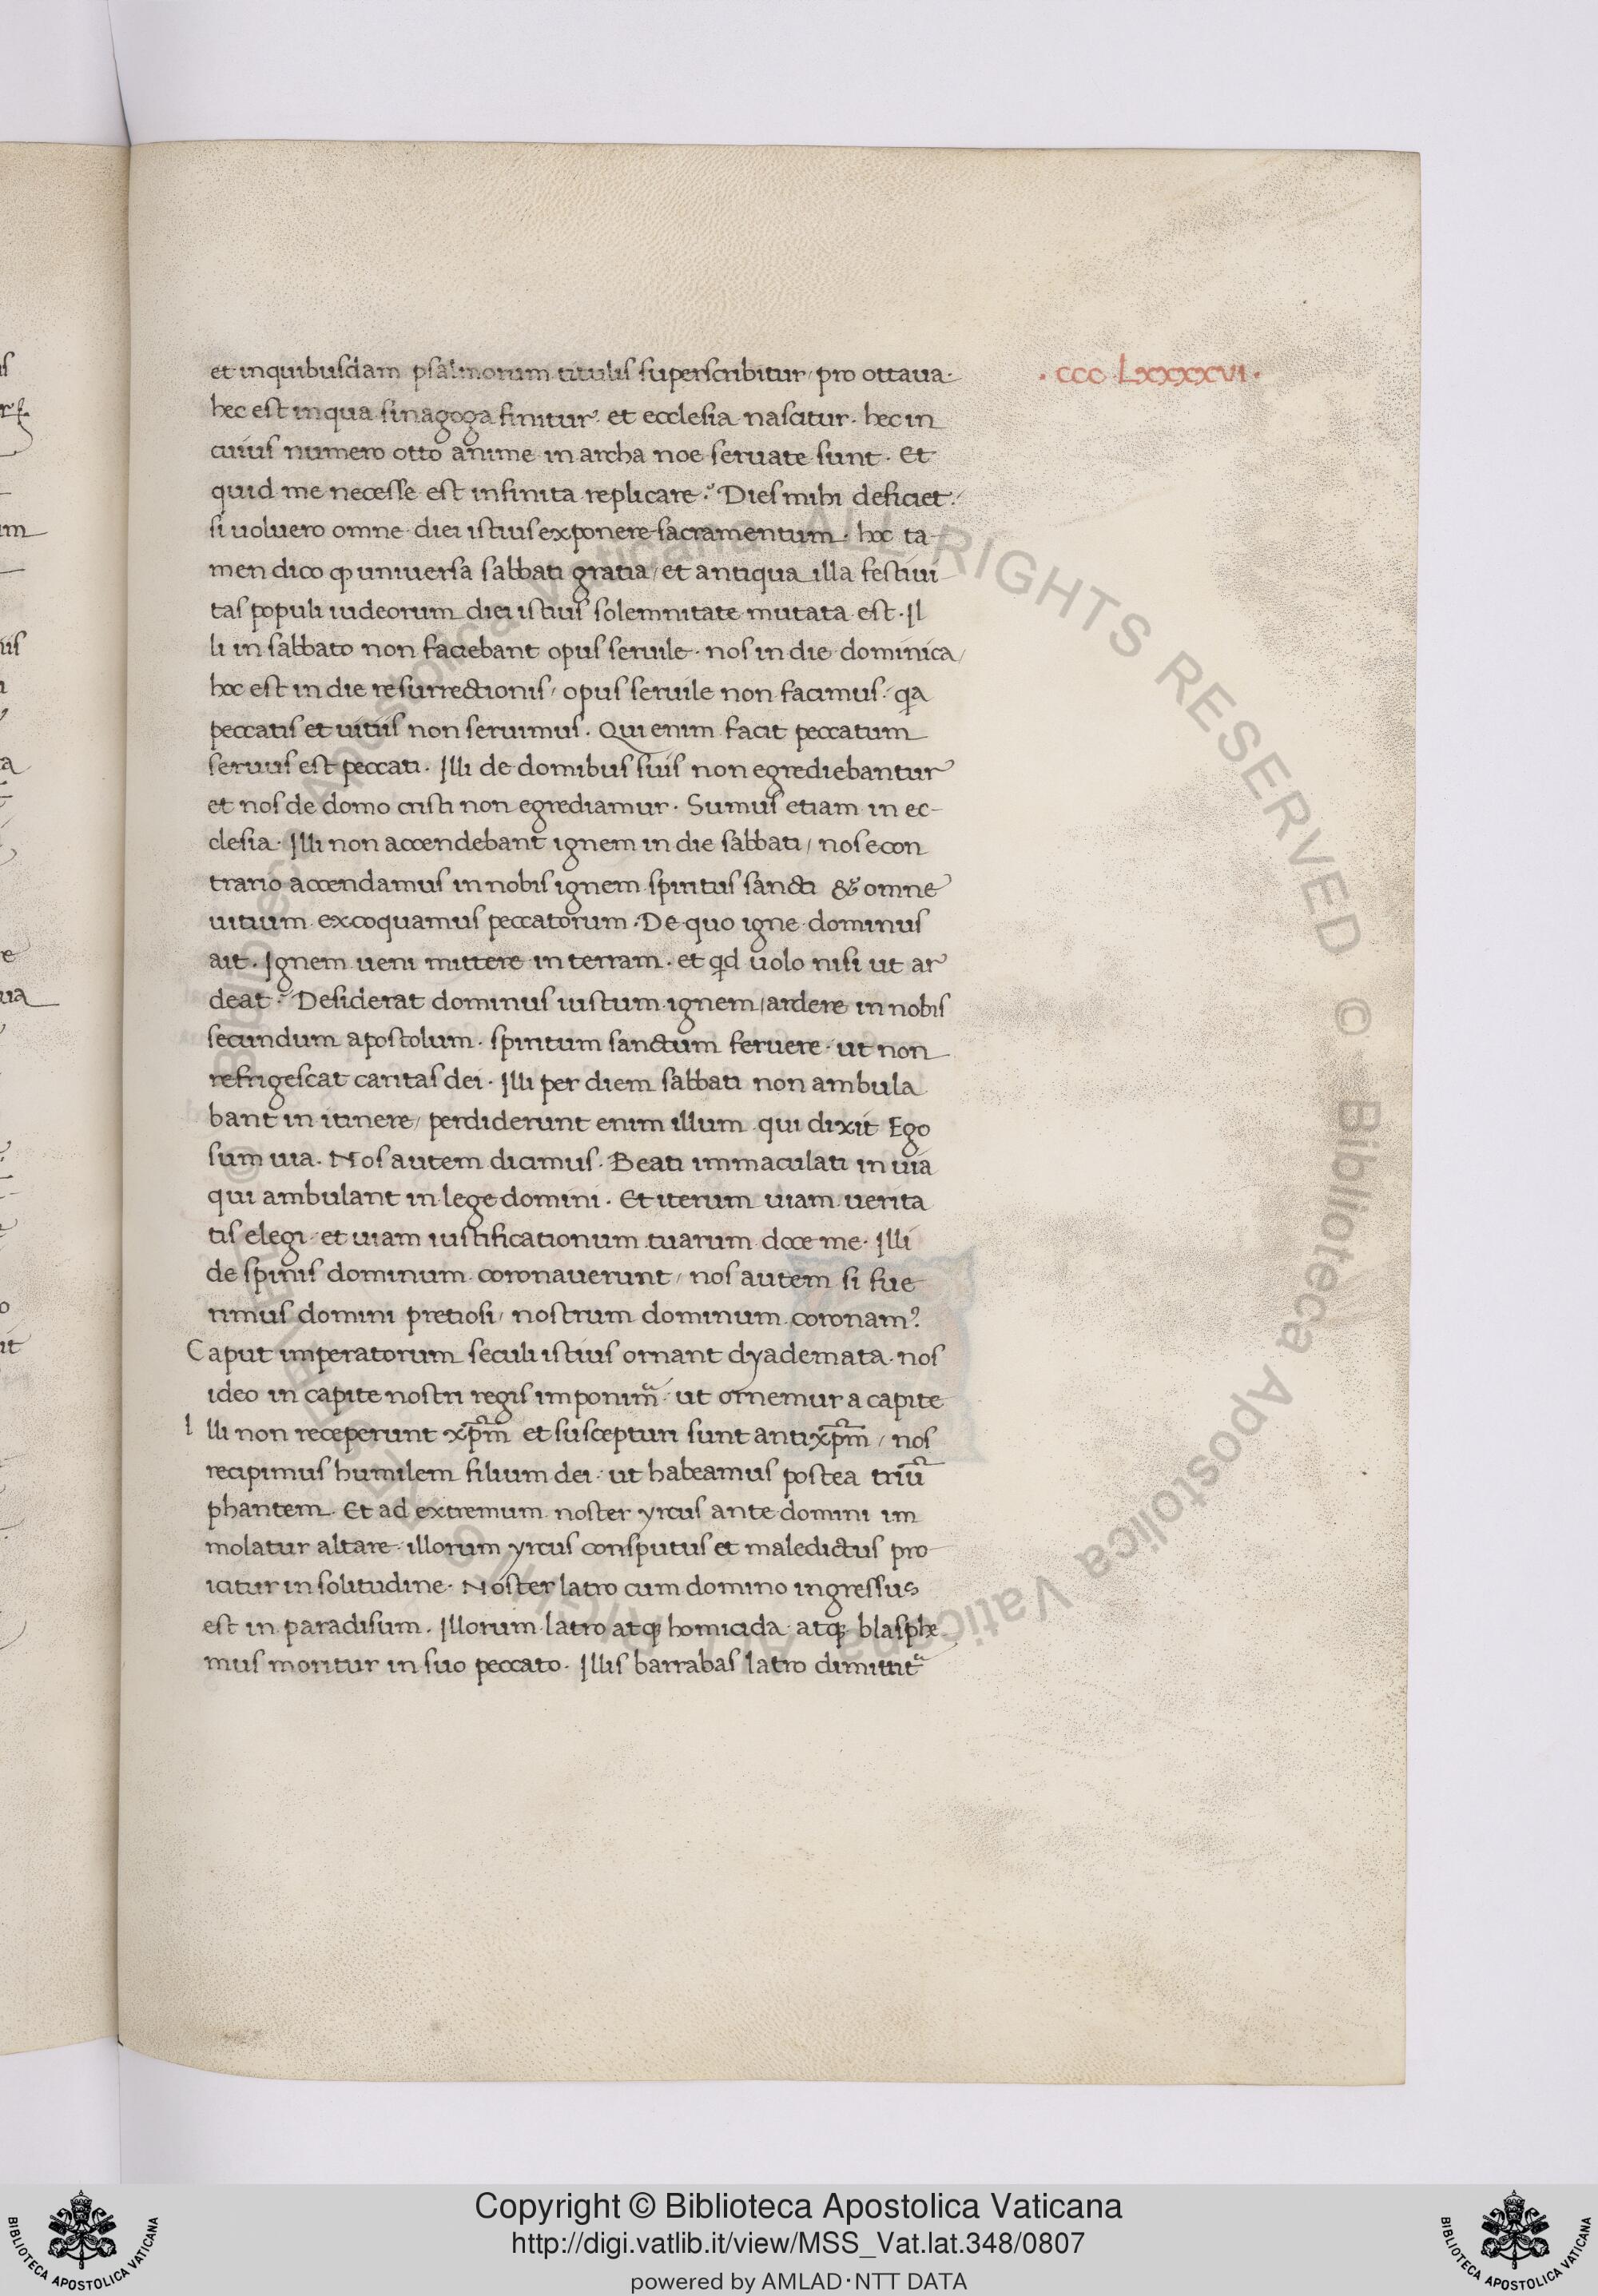 · CCC LXXXXVI ·
et in quibusdam psalmorum titulis superscribitur / pro ottaua ·
hec est in qua sinagoga finitur · et ecclesia nascitur · hec in
cuius numero otto anime in archa noe seruate sunt · Et
quid me necesse est infinita replicare ? Dies mihi deficiet /
si uoluero omne diei istius exponere sacramentum · hoc ta-
men dico ꝙ uniuersa sabbati gratia / et antiqua illa festiui-
tas populi iudeorum diei istius solemnitate mutata est · Il
li in sabbato non faciebant opus seruile · nos in die dominica /
hoc est in die resurrectionis / opus seruile non facimus · qa
peccatis et uitiis non seruimus · Qui enim facit peccatum
seruus est peccati · Illi de domibus suis non egrediebantur
et nos de domo cristi non egrediamur · Sumus etiam in ec-
clesia · Illi non accendebant ignem in die sabbati / nos econ
trario accendamus in nobis ignem spiritus sancti & omne
uitium excoquamus peccatorum · De quo igne dominus
ait · Ignem ueni mittere in terram · et qd uolo nisi ut ar
deat ? Desiderat dominus iustum ignem / ardere in nobis
secundum apostolum · spiritum sanctum feruere · ut non
refrigescat caritas dei · Illi per diem sabbati non ambula
bant in itinere / perdiderunt enim illum qui dixit Ego
sum uia · Nos autem dicimus · Beati immaculati in uia
qui ambulant in lege domini · Et iterum uiam uerita
tis elegi · et uiam iustificationum tuarum doce me · Illi
de spinis dominum coronauerunt / nos autem si fue
rimus domini pretiosi / nostrum dominum coronam?
Caput imperatorum seculi istius ornant dyademata · nos
ideo in capite nostri regis imponimᷓ · ut ornemur a capite
Illi non receperunt xp̄m et suscepturi sunt antixp̄m / nos
recipimus humilem filium dei · ut habeamus postea triū
phantem · Et ad extremum noster yrcus ante domini im
molatur altare · illorum yrcus consputus et maledictus pro
icitur in solitudine · Noster latro cum domino ingressus
est in paradisum · Illorum latro atqꝫ homicida atqꝫ blasphe
mus moritur in suo peccato · Illis barrabas latro dimittitᷓ
© Biblioteca Apostolica Vaticana ALL RIGHTS RESERVED
© Biblioteca Apostolica Vaticana ALL RIGHTS RESERVED
Copyright © Biblioteca Apostolica Vaticana
http://digi.vatlib.it/view/MSS_Vat.lat.348/0807
powered by AMLAD·NTT DATA
BIBLIOTECA APOSTOLICA VATICANA
BIBLIOTECA APOSTOLICA VATICANA